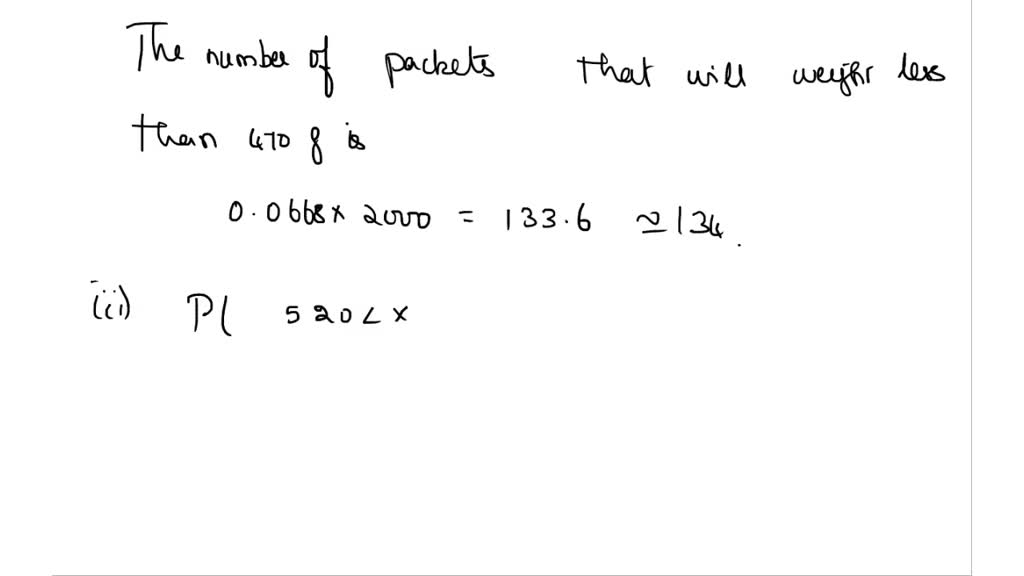 The number of packets that will weight less
than 470 g is
0.0668 x 2000 = 133.6 ≃ 134.
(ii) P( 520 < x